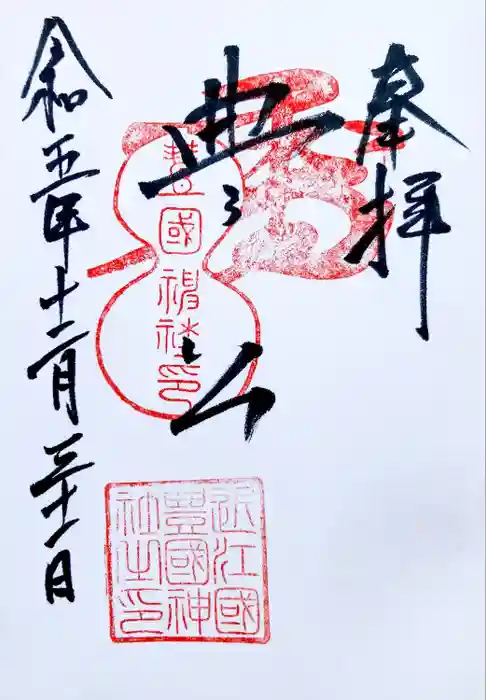 奉拝
豊國神社印
近江國
豊國神
社之印
令和五年十二月三十一日